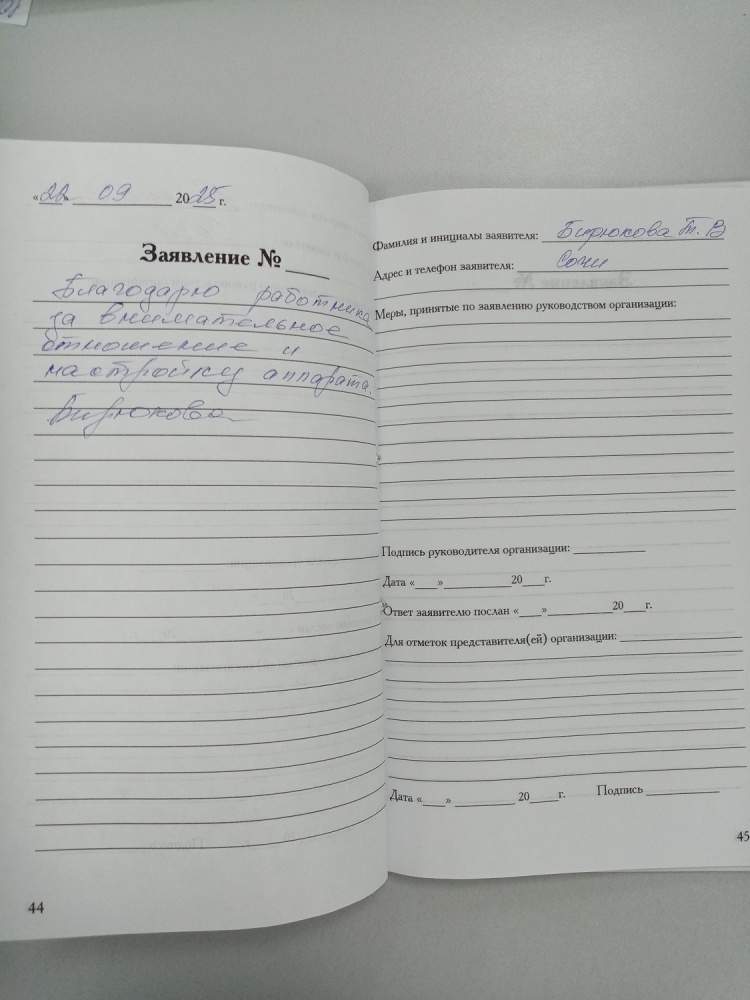 «22» 09 2025 г.
Заявление №
Благодарю работника
за внимательное
отношение и
настройку аппарата.
Бирюкова
44
Фамилия и инициалы заявителя: Бирюкова Т. В
Адрес и телефон заявителя: Сочи
Меры, принятые по заявлению руководством организации:
Подпись руководителя организации:
Дата « » 20 г.
Ответ заявителю послан « » 20 г.
Для отметок представителя(ей) организации:
Дата « » 20 г. Подпись
45